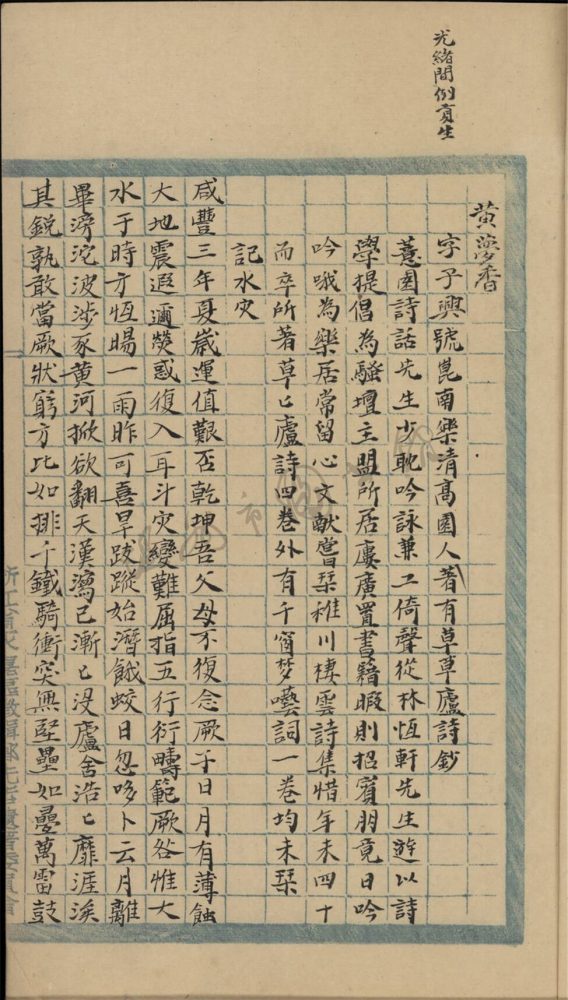 光緒間例貢生
黃夢香
字子興號崑南樂清高園人著有草草廬詩鈔
薏園詩話先生少耽吟詠兼工倚聲從林恆軒先生遊以詩
學提倡為騷壇主盟所居廣置書籍暇則招賓朋竟日吟
吟哦為樂居常留心文獻嘗琹稚川棲雲詩集惜年未四十
而卒所著草〻廬詩四卷外有千窗梦囈詞一卷均未琹
記水灾
咸豐三年夏歲運值艱否乾坤吾父母不復念厥子日月有薄蝕
大地震遐邇熒惑復入耳斗灾變難屈指五行衍疇範厥咎惟大
水于時方恆暘一雨昨可喜旱跋蹤始潛餓蛟日忽哆卜云月離
畢滂沱波涉豕黃河掀欲翻天漢瀉已漸〻没廬舍浩〻靡涯涘
其銳孰敢當厥狀窮方比如排千鐵騎衝突無堅壘如疊萬雷鼓